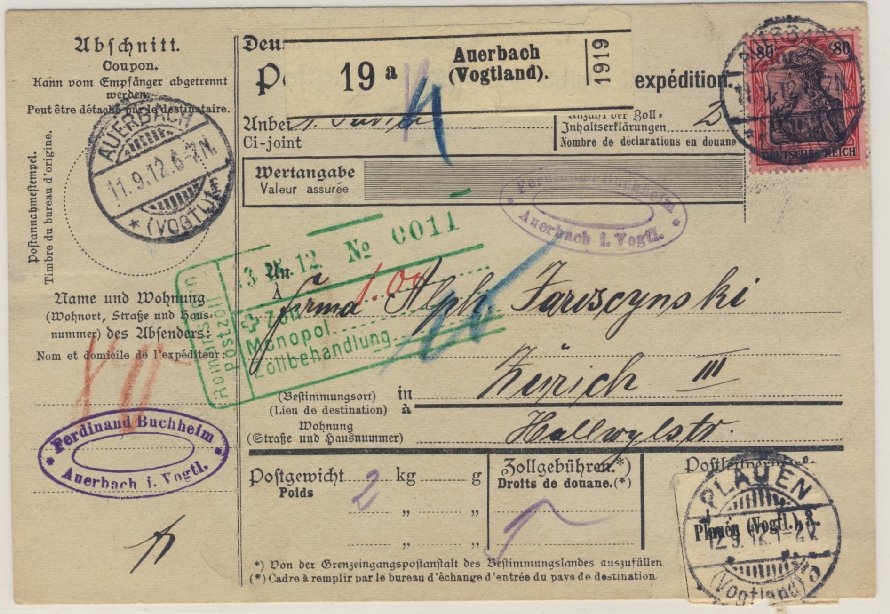 Abschnitt.
Coupon.
Kann vom Empfänger abgetrennt
werden.
Peut être détaché par le destinataire.
Postannahmestempel.
Timbre du bureau d'origine.
AUERBACH
11.9.12.6-7N.
* (VOGTL)
Name und Wohnung
(Wohnort, Straße und Haus-
nummer) des Absenders:
Nom et domicile de l'expéditeur
Ferdinand Buchheim
* Auerbach i. Vogtl. *
Deu
P
19 a
Auerbach
(Vogtland).
1919
expédition.
80 80
DEUTSCHES REICH
Anbei
Ci-joint
Anzahl der Zoll-
Inhaltserklärungen 2
Nombre de déclarations en douane
Wertangabe
Valeur assurée
Ferdinand Buchheim
* Auerbach i. Vogtl. *
Romanshorn
Postzoll
12. No 0011
Zoll 1.00
Monopol
Zollbehandlung
An
À
Firma Alph. Jaroszynski
(Bestimmungsort) in Zürich III
(Lieu de destination) à
Wohnung
(Straße und Hausnummer) Hallwylstr.
Postgewicht 2 kg g
Poids
" "
" "
Zollgebühren.*)
Droits de douane.(*)
PLAUEN
Plauen (Vogtl.) 3.
12.9.12.1-2V.
(Vogtland)
*) Von der Grenzeingangspostanstalt des Bestimmungslandes auszufüllen
(*) Cadre à remplir par le bureau d'échange d'entrée du pays de destination.